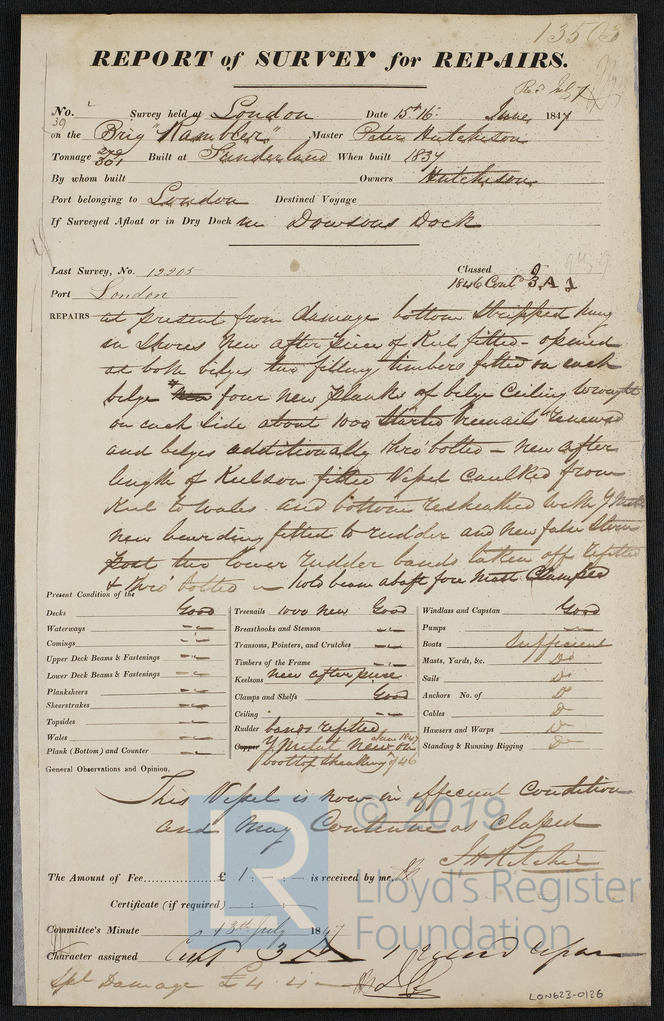 1350
REPORT of SURVEY for REPAIRS.
Rec July 7
No. 39 Survey held at London Date 15th 16 June, 1847
on the Brig "Rambler" Master Peter Hutcheson
Tonnage 301 Built at Sunderland When built 1837
By whom built Owners Hutcheson
Port belonging to London Destined Voyage
If Surveyed Afloat or in Dry Dock in Dowsons Dock
Last Survey, No. 12205 Classed
Port London 1846 Contd 3 A 1
REPAIRS at present from damage bottom stripped hung
in Shores New after piece of Keel fitted - opened
at both bilges two filling timbers fitted on each
bilge four new planks of bilge Ceiling wrought
on each side about 1000 started treenails renewed
and bilges additionally thro' bolted - new after
length of Keelson fitted Vessel Caulked from
Keel to wales and bottom resheathed with Y Metal
new bearding fitted to rudder and new false Stern
post two lower rudder bands taken off refitted
& thro' bolted - Hold beam abaft fore mast Clamped
Present Condition of the
Decks Good
Waterways
Comings
Upper Deck Beams & Fastenings
Lower Deck Beams & Fastenings
Planksheers
Sheerstrakes
Topsides
Wales
Plank (Bottom) and Counter
Treenails 1000 new Good
Breasthooks and Stemson
Transoms, Pointers, and Crutches
Timbers of the Frame
Keelsons new after piece
Clamps and Shelfs Good
Ceiling
Rudder bands refitted
Copper Y Metal New June 1847 on
boottop sheathing of 46
Windlass and Capstan Good
Pumps
Boats Sufficient
Masts, Yards, &c. Do
Sails Do
Anchors No. of Do
Cables Do
Hawsers and Warps Do
Standing & Running Rigging Do
General Observations and Opinion,
This Vessel is now in efficient Condition
and may Continue as Classed
The Amount of Fee £ 1 : - : - is received by me,
Certificate (if required) : :
Committee's Minute 13th July 1847
Character assigned Cont 3 A 1
Spl Damage £4 4 -
© 2019
LR
Lloyd's Register
Foundation
LON623-0126